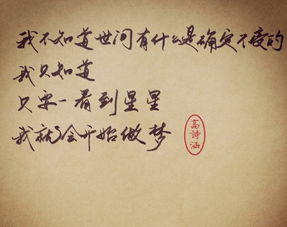 我不知道世间有什么是确定不变的
我只知道
只要一看到星星
我就会开始做梦
高诗涵